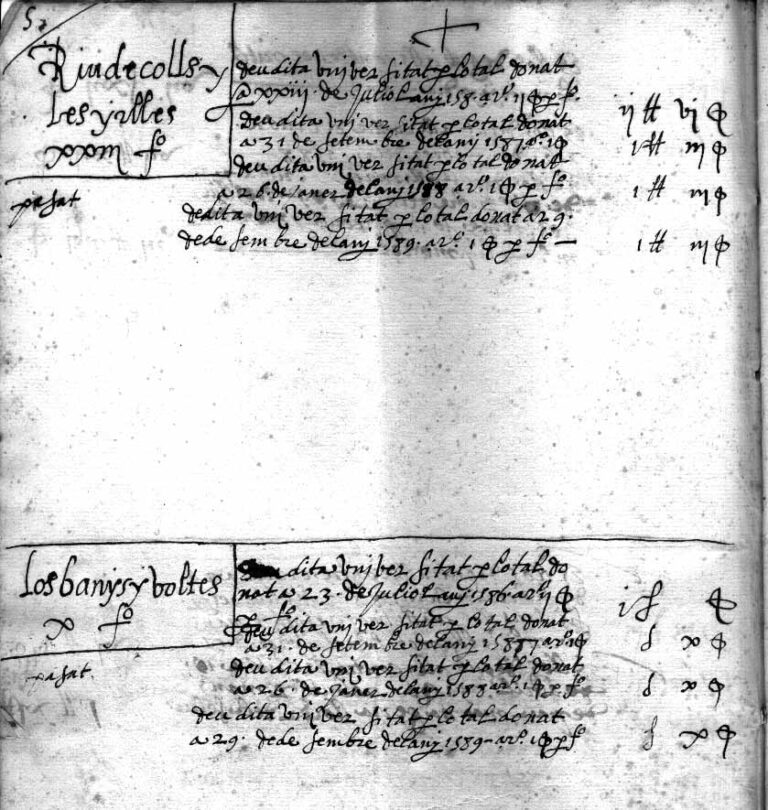 57
Riudecolls y
Les yrlles
xxiii fº
pasat
deu dita vniversitat p lo tal donat
a xxiii de Juliol any 158
deu dita vniversitat p lo tal donat
a 31 de setembre del any 1587 a rº 1
deu dita vniversitat p lo tal donat
a 26 de janer del any 1588 a rº 1 p fº
de dita vniversitat p lo tal donat a 29
de desembre del any 1589 a rº 1 p fº
ij ℔ vj
i ℔ iij
i ℔ iij
i ℔ iij
Los banys y voltes
x fº
pasat
dita vniversitat p lo tal do
nat a 23 de Juliol any 1586 a rº ij
fº
deu dita vniversitat p lo tal donat
a 31 de setembre del any 1587 a rº 1
deu dita vniversitat p lo tal donat
a 26 de janer del any 1588 a rº 1 p fº
deu dita vniversitat p lo tal donat
a 29 de desembre del any 1589 a rº 1 p fº
i
x
x
x